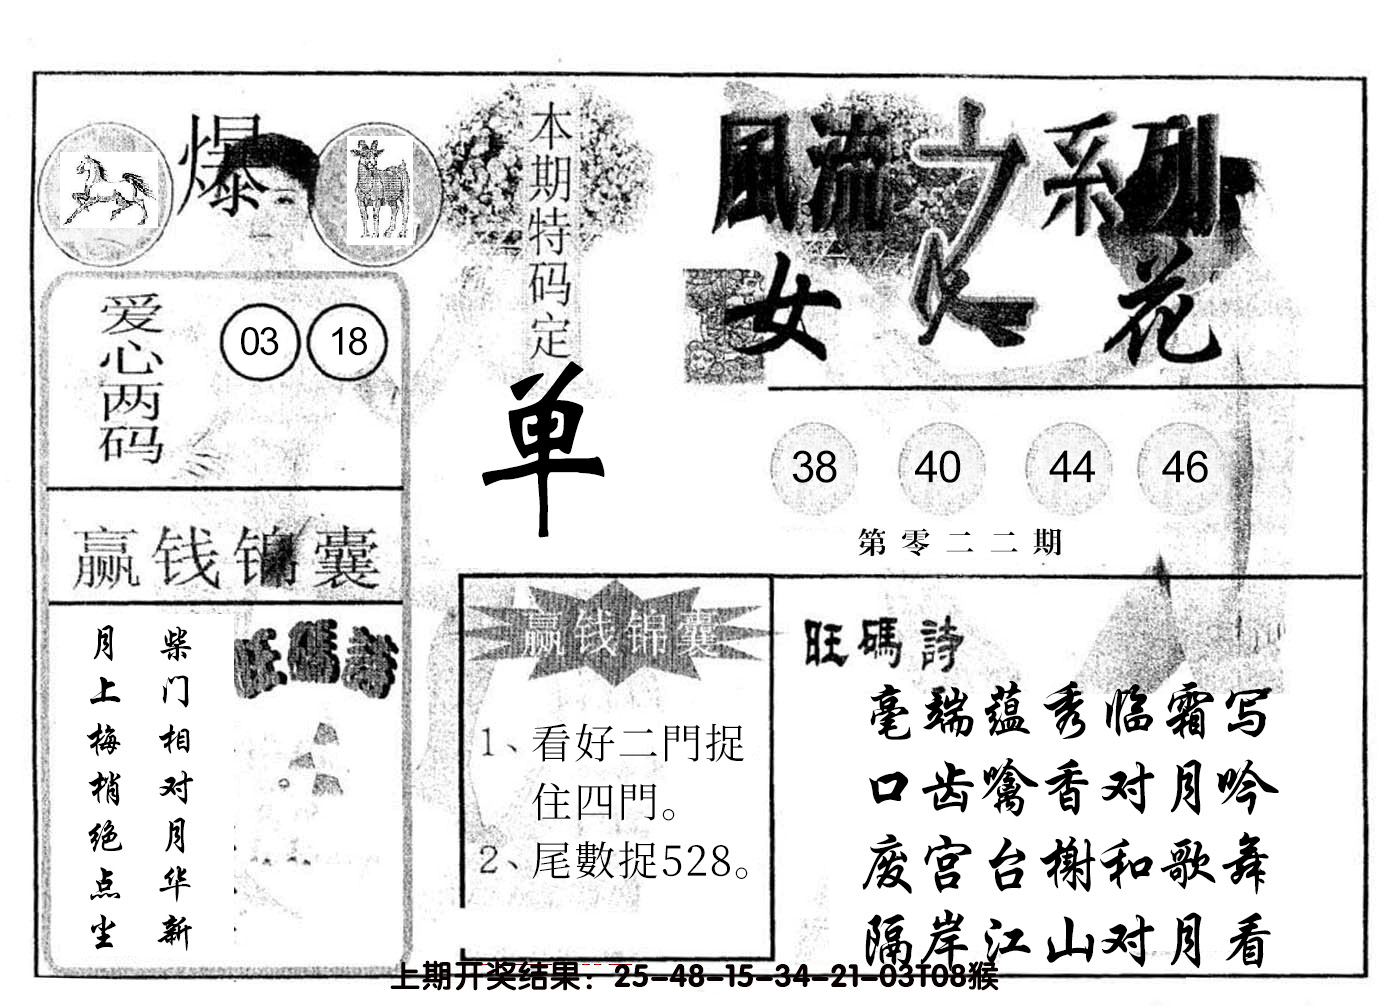 爆
本期特码定
单
風流之系列
女人花
爱心两码
03 18
38 40 44 46
第零二二期
赢钱锦囊
柴门相对月华新
月上梅梢绝点尘
旺碼詩
赢钱锦囊
1、看好二門捉
住四門。
2、尾數捉528。
旺碼詩
毫端蕴秀临霜写
口齿噙香对月吟
废宫台榭和歌舞
隔岸江山对月看
上期开奖结果：25-48-15-34-21-03T08猴